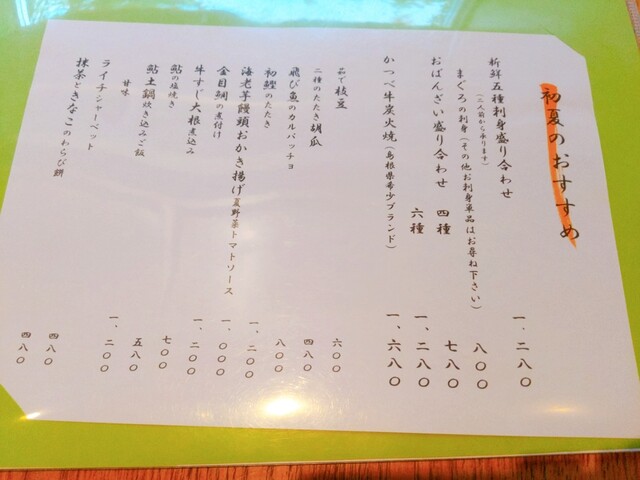 初夏のおすすめ
新鮮五種刺身盛り合わせ 一、二八〇
(二人前から承ります)
まぐろの刺身(その他お刺身単品はお尋ね下さい) 八〇〇
おばんざい盛り合わせ 四種 七八〇
六種 一、二八〇
かつべ牛炭火焼(島根県希少ブランド) 一、六八〇
茹で枝豆 六〇〇
二種のたたき胡瓜 四八〇
飛び魚のカルパッチョ 八〇〇
初鰹のたたき 一、二〇〇
海老芋饅頭おかき揚げ夏野菜トマトソース 一、〇〇〇
金目鯛の煮付け 一、二〇〇
牛すじ大根煮込み 七〇〇
鮎の塩焼き 五八〇
鮎土鍋炊き込みご飯 一、二〇〇
甘味
ライチシャーベット 四八〇
抹茶ときなこのわらび餅 四八〇